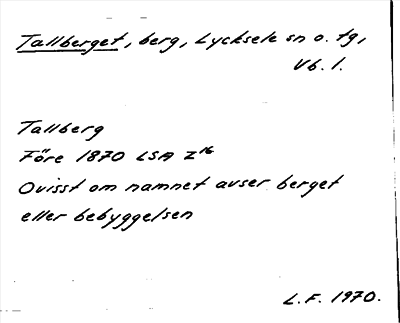 Tallberget, berg, Lycksele sn o. tg,
Vb. l.
Tallberg
Före 1870 LSA Z16
Ovisst om namnet avser berget
eller bebyggelsen
L.F. 1970.